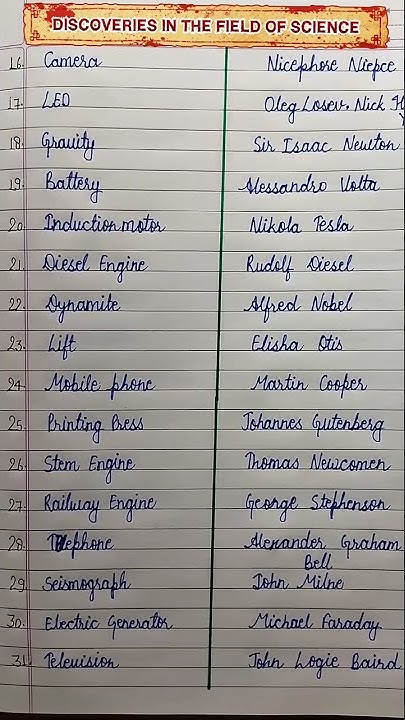 DISCOVERIES IN THE FIELD OF SCIENCE
16. Camera Nicephore Niepce
17. LED Oleg Losev. Nick
18. Gravity Sir Isaac Newton
19. Battery Alessandro Volta
20. Induction motor Nikola Tesla
21. Diesel Engine Rudolf Diesel
22. Dynamite Alfred Nobel
23. Lift Elisha Otis
24. Mobile phone Martin Cooper
25. Printing Press Johannes Gutenberg
26. Stem Engine Thomas Newcomen
27. Railway Engine George Stephenson
28. Telephone Alexander Graham
Bell
29. Seismograph John Milne
30. Electric Generator Michael Faraday
31. Television John Logie Baird